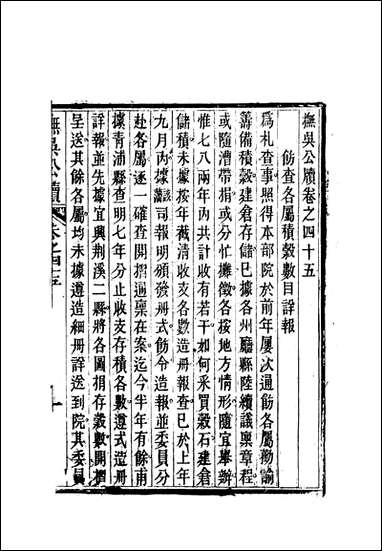 撫吳公牘卷之四十五
飭查各屬積穀數目詳報
為札查事照得本部院於前年屢次通飭各屬勸諭
籌備積穀建倉存儲已據各州廳縣陸續議稟章程
或隨漕帶捐或分忙攤徵各按地方情形隨宜舉辦
惟七八兩年內共計收有若干如何采買穀石建倉
儲積未據按年截清收支各數造冊報查已於上年
九月內據該司詳明頒發冊式飭令造報並委員分
赴各屬逐一確查開摺過稟在案迄今半年有餘甫
據青浦縣查明七年分止收支存積各數遵式造冊
詳報並先據宜興荆溪二縣將各圖捐存穀數開摺
呈送其餘各屬均未據遵造細冊詳送到院其委員
撫吳公牘
卷之四十五
一